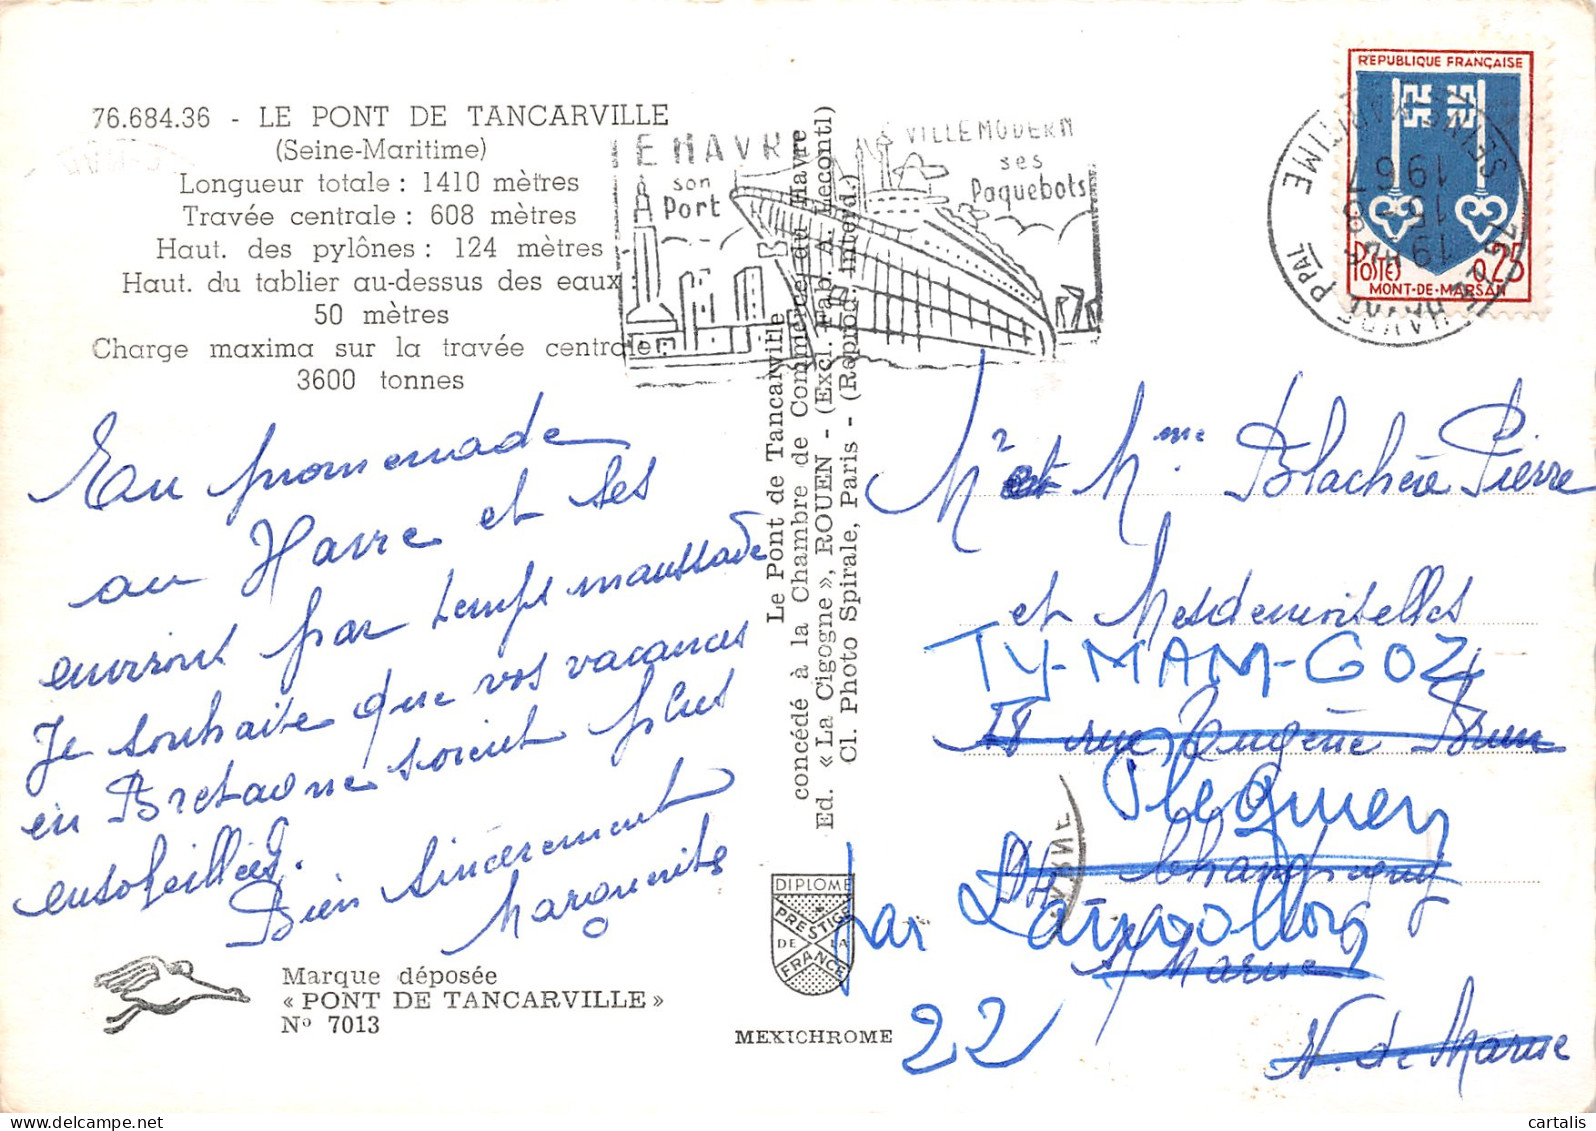 76.684.36 - LE PONT DE TANCARVILLE
(Seine-Maritime)
Longueur totale : 1410 mètres
Travée centrale : 608 mètres
Haut. des pylônes : 124 mètres
Haut. du tablier au-dessus des eaux :
50 mètres
Charge maxima sur la travée centrale :
3600 tonnes
En promenade
au Havre et ses
environs par temps maussade
Je souhaite que vos vacances
en Bretagne soient plus
ensoleillées.
Bien sincèrement
Marguerite
Marque déposée
« PONT DE TANCARVILLE »
Nº 7013
LE HAVRE
son
Port
VILLE MODERN
ses
Paquebots
Le Pont de Tancarville
concédé à la Chambre de Commerce du Havre
Ed. « La Cigogne », ROUEN - (Excl. Fab. A. Lecont)
Cl. Photo Spirale, Paris - (Reprod. Interd.)
DIPLOME
PRESTIGE
DE LA
FRANCE
MEXICHROME
REPUBLIQUE FRANÇAISE
POSTES 0,25
MONT-DE-MARSAN
76 LE HAVRE PPAL
SEINE MARITIME
19H
15 - 8
1967
Mr et Mme Blachère Pierre
et Mesdemoiselles
TY-MAM-GOZ
28 rue Eugène Brun
Pleguien
94 Champigny
par Lanvollon
s/ Marne
22
V. de Marne
MARNE
www.delcampe.net
cartalis